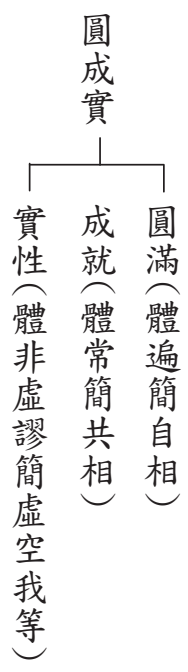 圓成實
圓滿（體遍簡自相）
成就（體常簡共相）
實性（體非虛謬簡虛空我等）